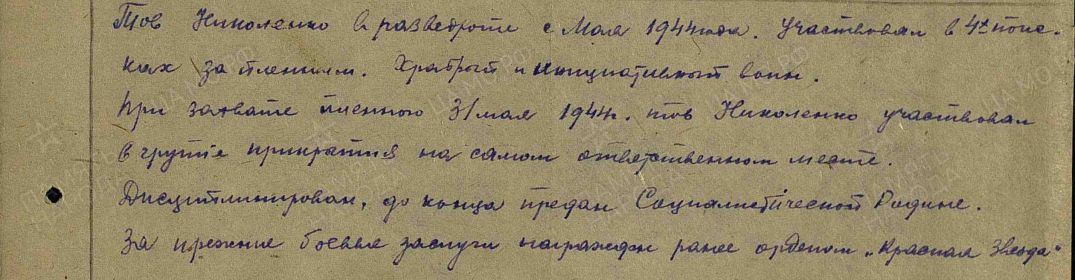 Тов Николенко в разведроте с Мая 1944 года. Участвовал в 4х поис-
ках за пленным. Храбрый и инициативный воин.
При захвате пленного 31 мая 1944г. тов Николенко участвовал
в группе прикрытия на самом ответственном месте.
Дисциплинирован, до конца предан Социалистической Родине.
За прежние боевые заслуги награжден ранее орденом „Красная Звезда"